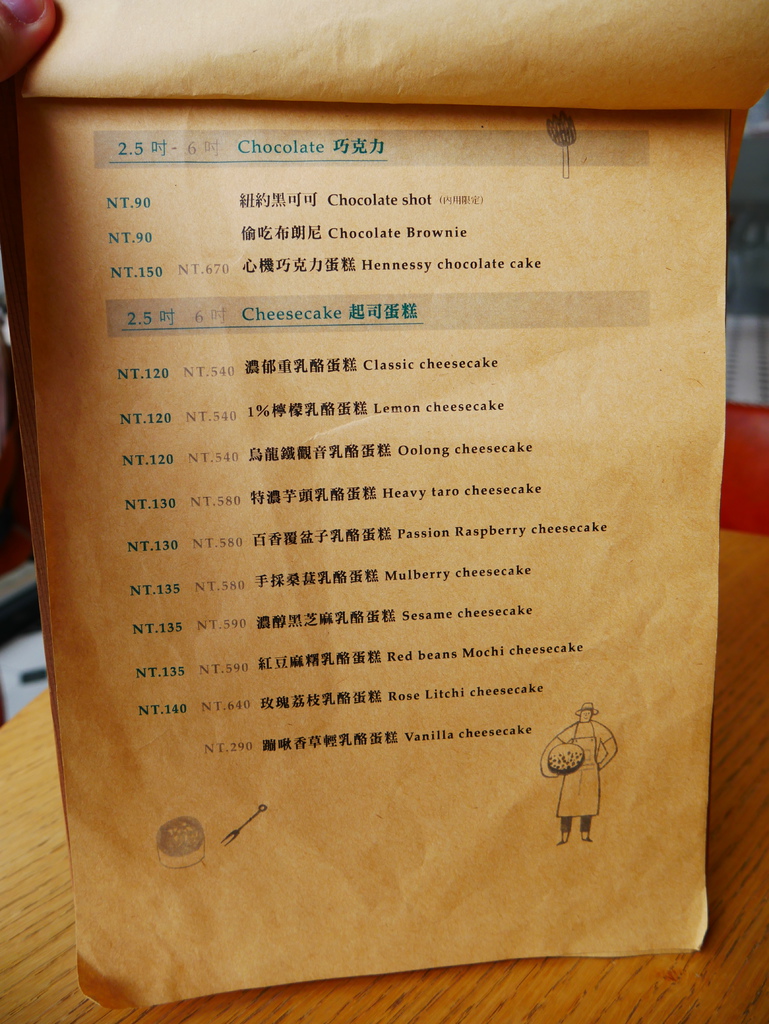 2.5 吋 - 6 吋 Chocolate 巧克力
NT.90 紐約黑可可 Chocolate shot (內用限定)
NT.90 偷吃布朗尼 Chocolate Brownie
NT.150 NT.670 心機巧克力蛋糕 Hennessy chocolate cake
2.5 吋 6 吋 Cheesecake 起司蛋糕
NT.120 NT.540 濃郁重乳酪蛋糕 Classic cheesecake
NT.120 NT.540 1%檸檬乳酪蛋糕 Lemon cheesecake
NT.120 NT.540 烏龍鐵觀音乳酪蛋糕 Oolong cheesecake
NT.130 NT.580 特濃芋頭乳酪蛋糕 Heavy taro cheesecake
NT.130 NT.580 百香覆盆子乳酪蛋糕 Passion Raspberry cheesecake
NT.135 NT.580 手採桑葚乳酪蛋糕 Mulberry cheesecake
NT.135 NT.590 濃醇黑芝麻乳酪蛋糕 Sesame cheesecake
NT.135 NT.590 紅豆麻糬乳酪蛋糕 Red beans Mochi cheesecake
NT.140 NT.640 玫瑰荔枝乳酪蛋糕 Rose Litchi cheesecake
NT.290 蹦啾香草輕乳酪蛋糕 Vanilla cheesecake